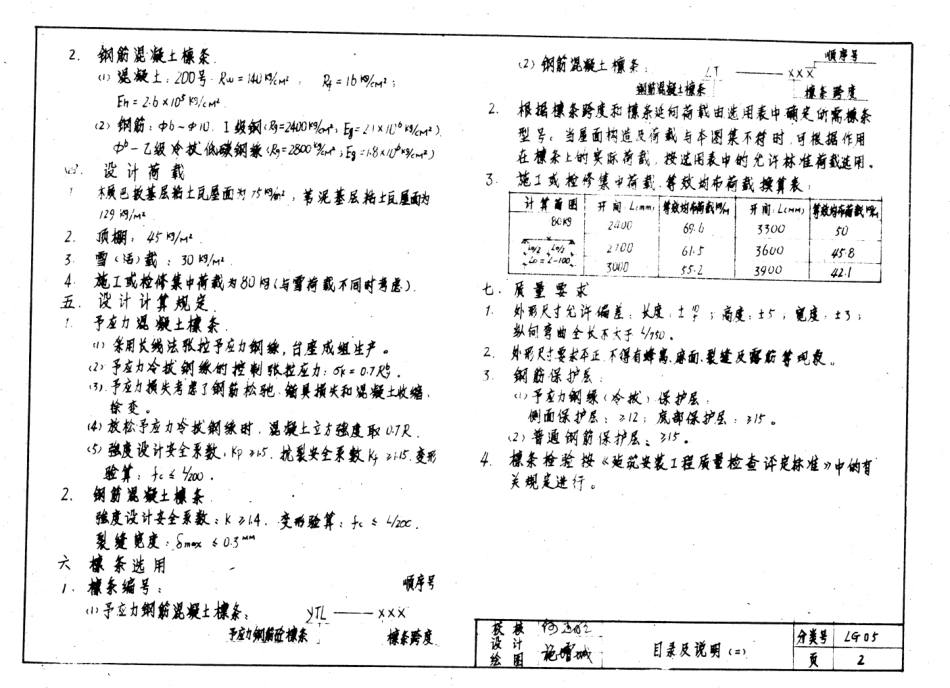 2. 钢筋混凝土檩条
(1) 混凝土:200号 Rw=140kg/cm², Rf=16kg/cm²;
Eh=2.6×10⁵kg/cm²
(2) 钢筋:φ6~φ10. I级钢(Rg=2400kg/cm², Eg=2.1×10⁶kg/cm²)
φᵇ-乙级冷拔低碳钢丝(Rg=2800kg/cm², Eg=1.8×10⁶kg/cm²)
四. 设计荷载
1. 木质巴板基层粘土瓦屋面为75kg/m², 苇泥基层粘土瓦屋面为
129kg/m²
2. 顶棚: 45kg/m²
3. 雪(活)载: 30kg/m².
4. 施工或检修集中荷载为80kg(与雪荷载不同时考虑).
五. 设计计算规定
1. 予应力混凝土檩条
(1) 采用长线法张拉予应力钢丝,台座成组生产。
(2) 予应力冷拔钢丝的控制张拉应力: σk=0.7
(3) 予应力损失考虑了钢筋松弛、锚具损失和混凝土收缩、
徐变。
(4) 放松予应力冷拔钢丝时,混凝土立方强度取0.7R.
(5) 强度设计安全系数, Kp≥1.5, 抗裂安全系数Kf≥1.15, 变形
验算: fc≤l/200.
2. 钢筋混凝土檩条
强度设计安全系数: K≥1.4, 变形验算: fc≤l/200,
裂缝宽度: δmax≤0.3mm
六 檩条选用
1. 檩条编号: 顺序号
(1) 予应力钢筋混凝土檩条: YTL——×××
予应力钢筋砼檩条 檩条跨度
顺序号
(2) 钢筋混凝土檩条: LT——×××
钢筋混凝土檩条 檩条跨度
2. 根据檩条跨度和檩条延向荷载由选用表中确定所需檩条
型号。当屋面构造及荷载与本图集不符时,可根据作用
在檩条上的实际荷载,按选用表中的允许标准荷载选用。
3. 施工或检修集中荷载、等效均布荷载换算表:
计算简图 开间L(mm) 等效均布荷载kg/m 开间L(mm) 等效均布荷载kg/m
80kg 2400 69.6 3300 50
L₀/2 L₀/2 2700 61.5 3600 45.8
L₀=L-100 3000 55.2 3900 42.1
七. 质量要求
1. 外形尺寸允许偏差: 长度: ±; 高度: ±5; 宽度: ±3;
纵向弯曲全长不大于l/750.
2. 外形尺寸要求平正,不得有蜂窝、麻面、裂缝及露筋等现象。
3. 钢筋保护层:
(1) 予应力钢丝(冷拔)保护层:
侧面保护层: ≥12; 底部保护层: ≥15。
(2) 普通钢筋保护层: ≥15。
4. 檩条检验按《建筑安装工程质量检查评定标准》中的有
关规定进行。
校核
设计
绘图
目录及说明(二)
分类号 LG05
页 2